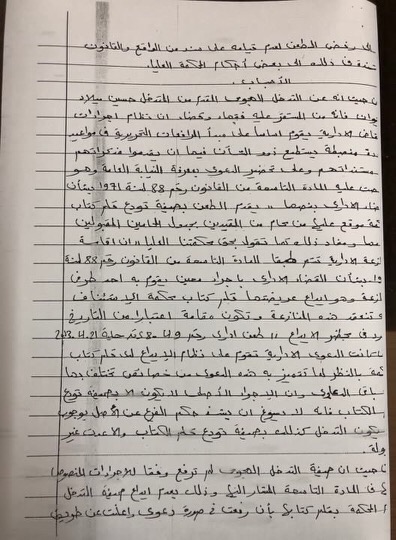 إلى رفض الطعن لعدم قيامه على سند من الواقع والقانون
في ذلك إلى بعض أحكام المحكمة العليا.
الأسباب
حيث إنه عن التدخل الهجومي المقدم من المتدخل حسين ميلاد
فإنه من المستقر عليه فقها وقضاء ان نظام إجراءات
الادارية يقوم أساسا على مبدأ المرافعات التحريرية في مواعيد
منضبطة يستطيع ذوو الشأن فيها ان يقدموا مذكراتهم
ومستنداتهم وعلى تحضير الدعوى بمعرفة النيابة العامة وهو
عليه المادة التاسعة من القانون رقم 88 لسنة 1971 بشأن
القضاء الاداري بنصها " يقدم الطعن بصحيفة تودع قلم كتاب
موقع عليها من محام من المقيدين بجدول المحامين المقبولين
ومفاد ذلك كما تقول بحق محكمتنا العليا " ان اقامة
الادارية تتم طبقا للمادة التاسعة من القانون رقم 88 لسنة
بشأن القضاء الاداري باجراء معين يقوم به احد طرفي
وهو ايداع عريضتها قلم كتاب محكمة الاستئناف
وتنعقد هذه المنازعة وتكون مقامة اعتبارا من التاريخ
الايداع " طعن اداري رقم
كانت الدعوى الادارية تقوم على نظام الايداع لدى قلم كتاب
بالنظر لما تتميز به هذه الدعوى من خصائص تختلف بها
وان الاجراء الأصلي لا يكون الا بصحيفة تودع
الكتاب فإنه لا يسوغ ان يشذ حكم الفرع عن الأصل بوجوب
يكون التدخل كذلك بصحيفة تودع قلم الكتاب والا عد غير
حيث إن صحيفة التدخل الهجومي لم ترفع وفقا للاجراءات المنصوص
في المادة التاسعة المشار اليها وذلك بعدم ايداع صحيفة التدخل
المحكمة بقلم كتابها بأن رفعت في صورة دعوى واعلنت عن طريق